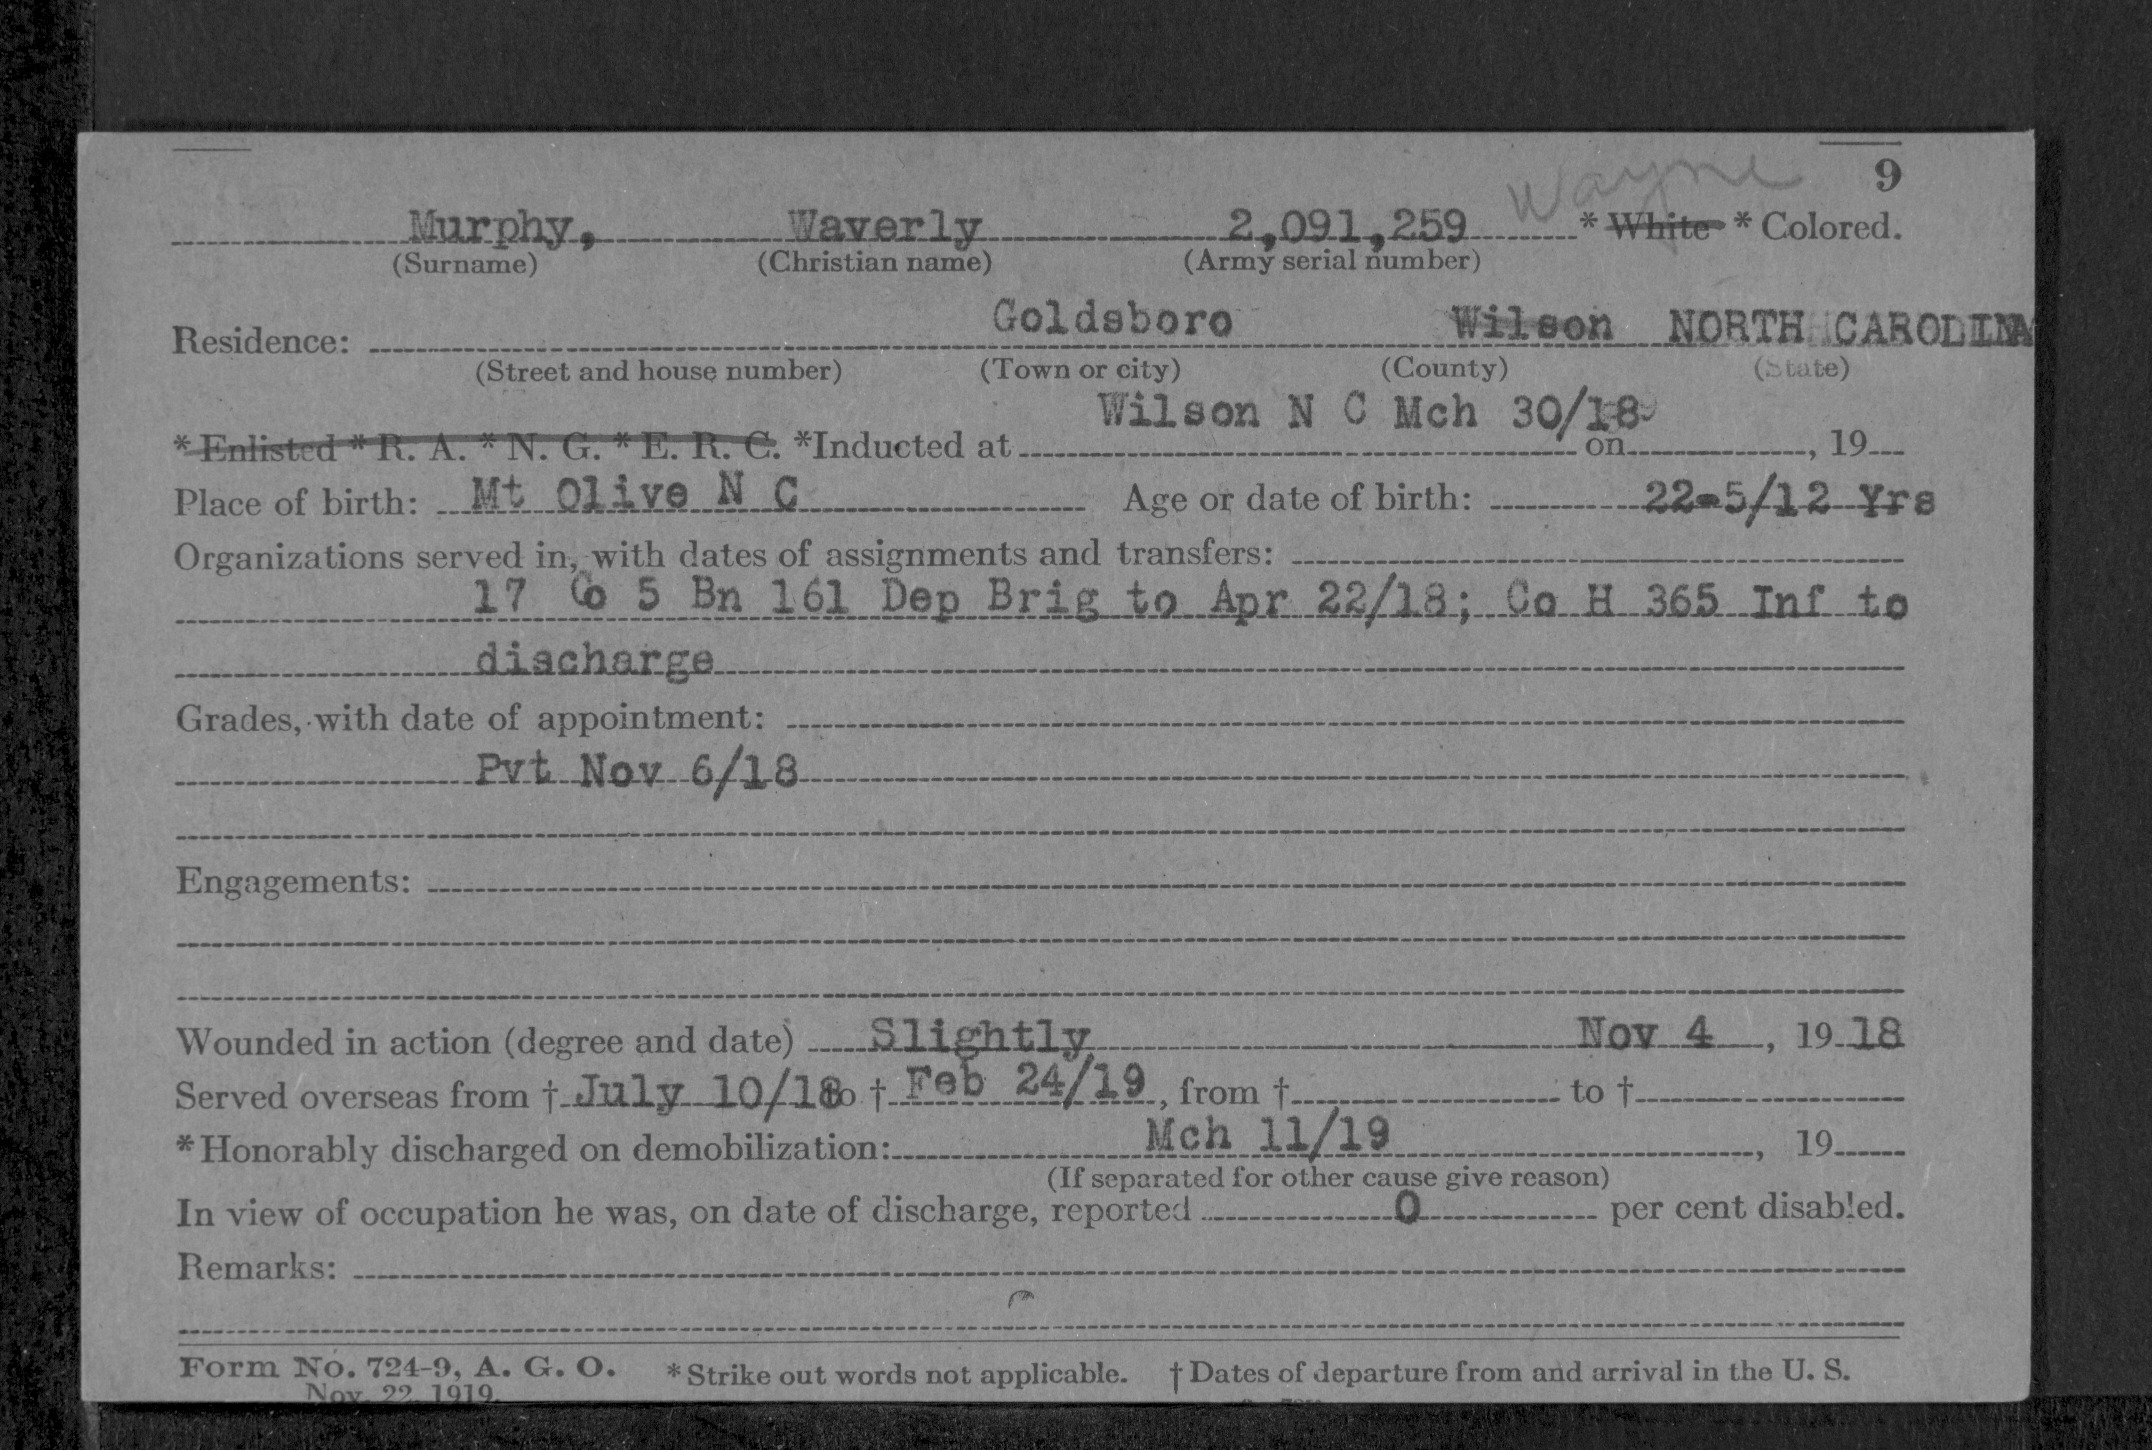 Wayne 9
Murphy, Waverly 2,091,259 * White * Colored.
(Surname) (Christian name) (Army serial number)
Goldsboro Wilson NORTH CAROLINA
Residence:
(Street and house number) (Town or city) (County) (State)
Wilson N C Mch 30/18
* Enlisted * R. A. * N. G. * E. R. C. *Inducted at on , 19
Place of birth: Mt Olive N C Age or date of birth: 22-5/12 Yrs
Organizations served in, with dates of assignments and transfers:
17 Co 5 Bn 161 Dep Brig to Apr 22/18; Co H 365 Inf to
discharge
Grades, with date of appointment:
Pvt Nov 6/18
Engagements:
Wounded in action (degree and date) Slightly Nov 4 , 19 18
Served overseas from † July 10/18 to † Feb 24/19 , from † to †
* Honorably discharged on demobilization: Mch 11/19 , 19
(If separated for other cause give reason)
In view of occupation he was, on date of discharge, reported 0 per cent disabled.
Remarks:
Form No. 724-9, A. G. O. * Strike out words not applicable. † Dates of departure from and arrival in the U. S.
Nov. 22, 1919.